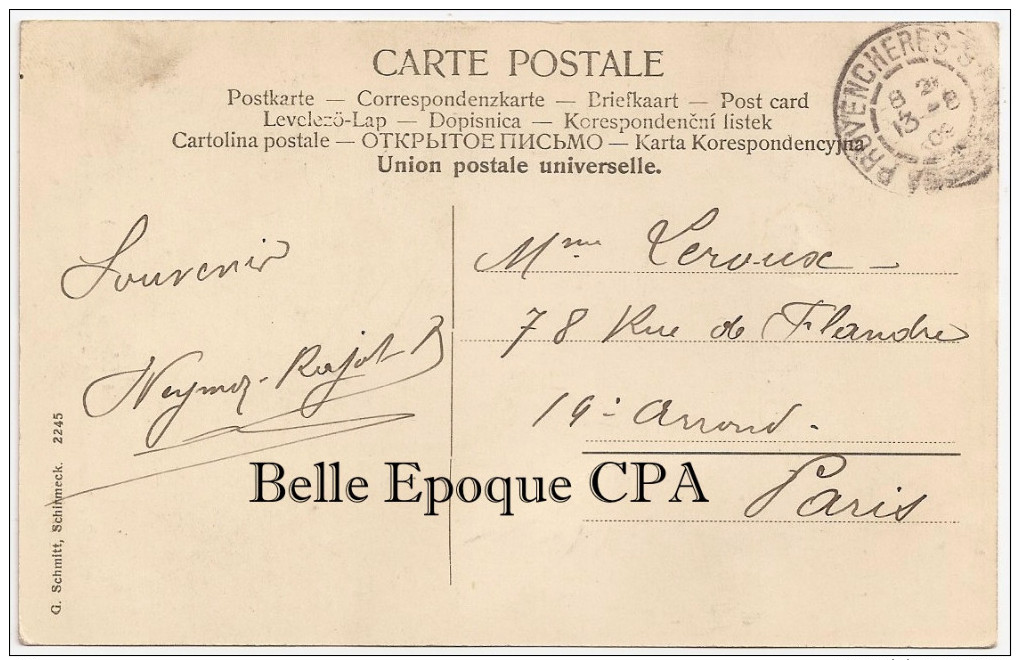 CARTE POSTALE
Postkarte — Correspondenzkarte — Briefkaart — Post card
Levelező-Lap — Dopisnica — Korespondenční listek
Cartolina postale — ОТКРЫТОЕ ПИСЬМО — Karta Korespondencyjna
Union postale universelle.
PROVENCHERES-S
13
Souvenir
Mme Leroux
78 Rue de Flandre
19e Arrond.
Paris
G. Schmitt, Schirmeck. 2245
Belle Epoque CPA